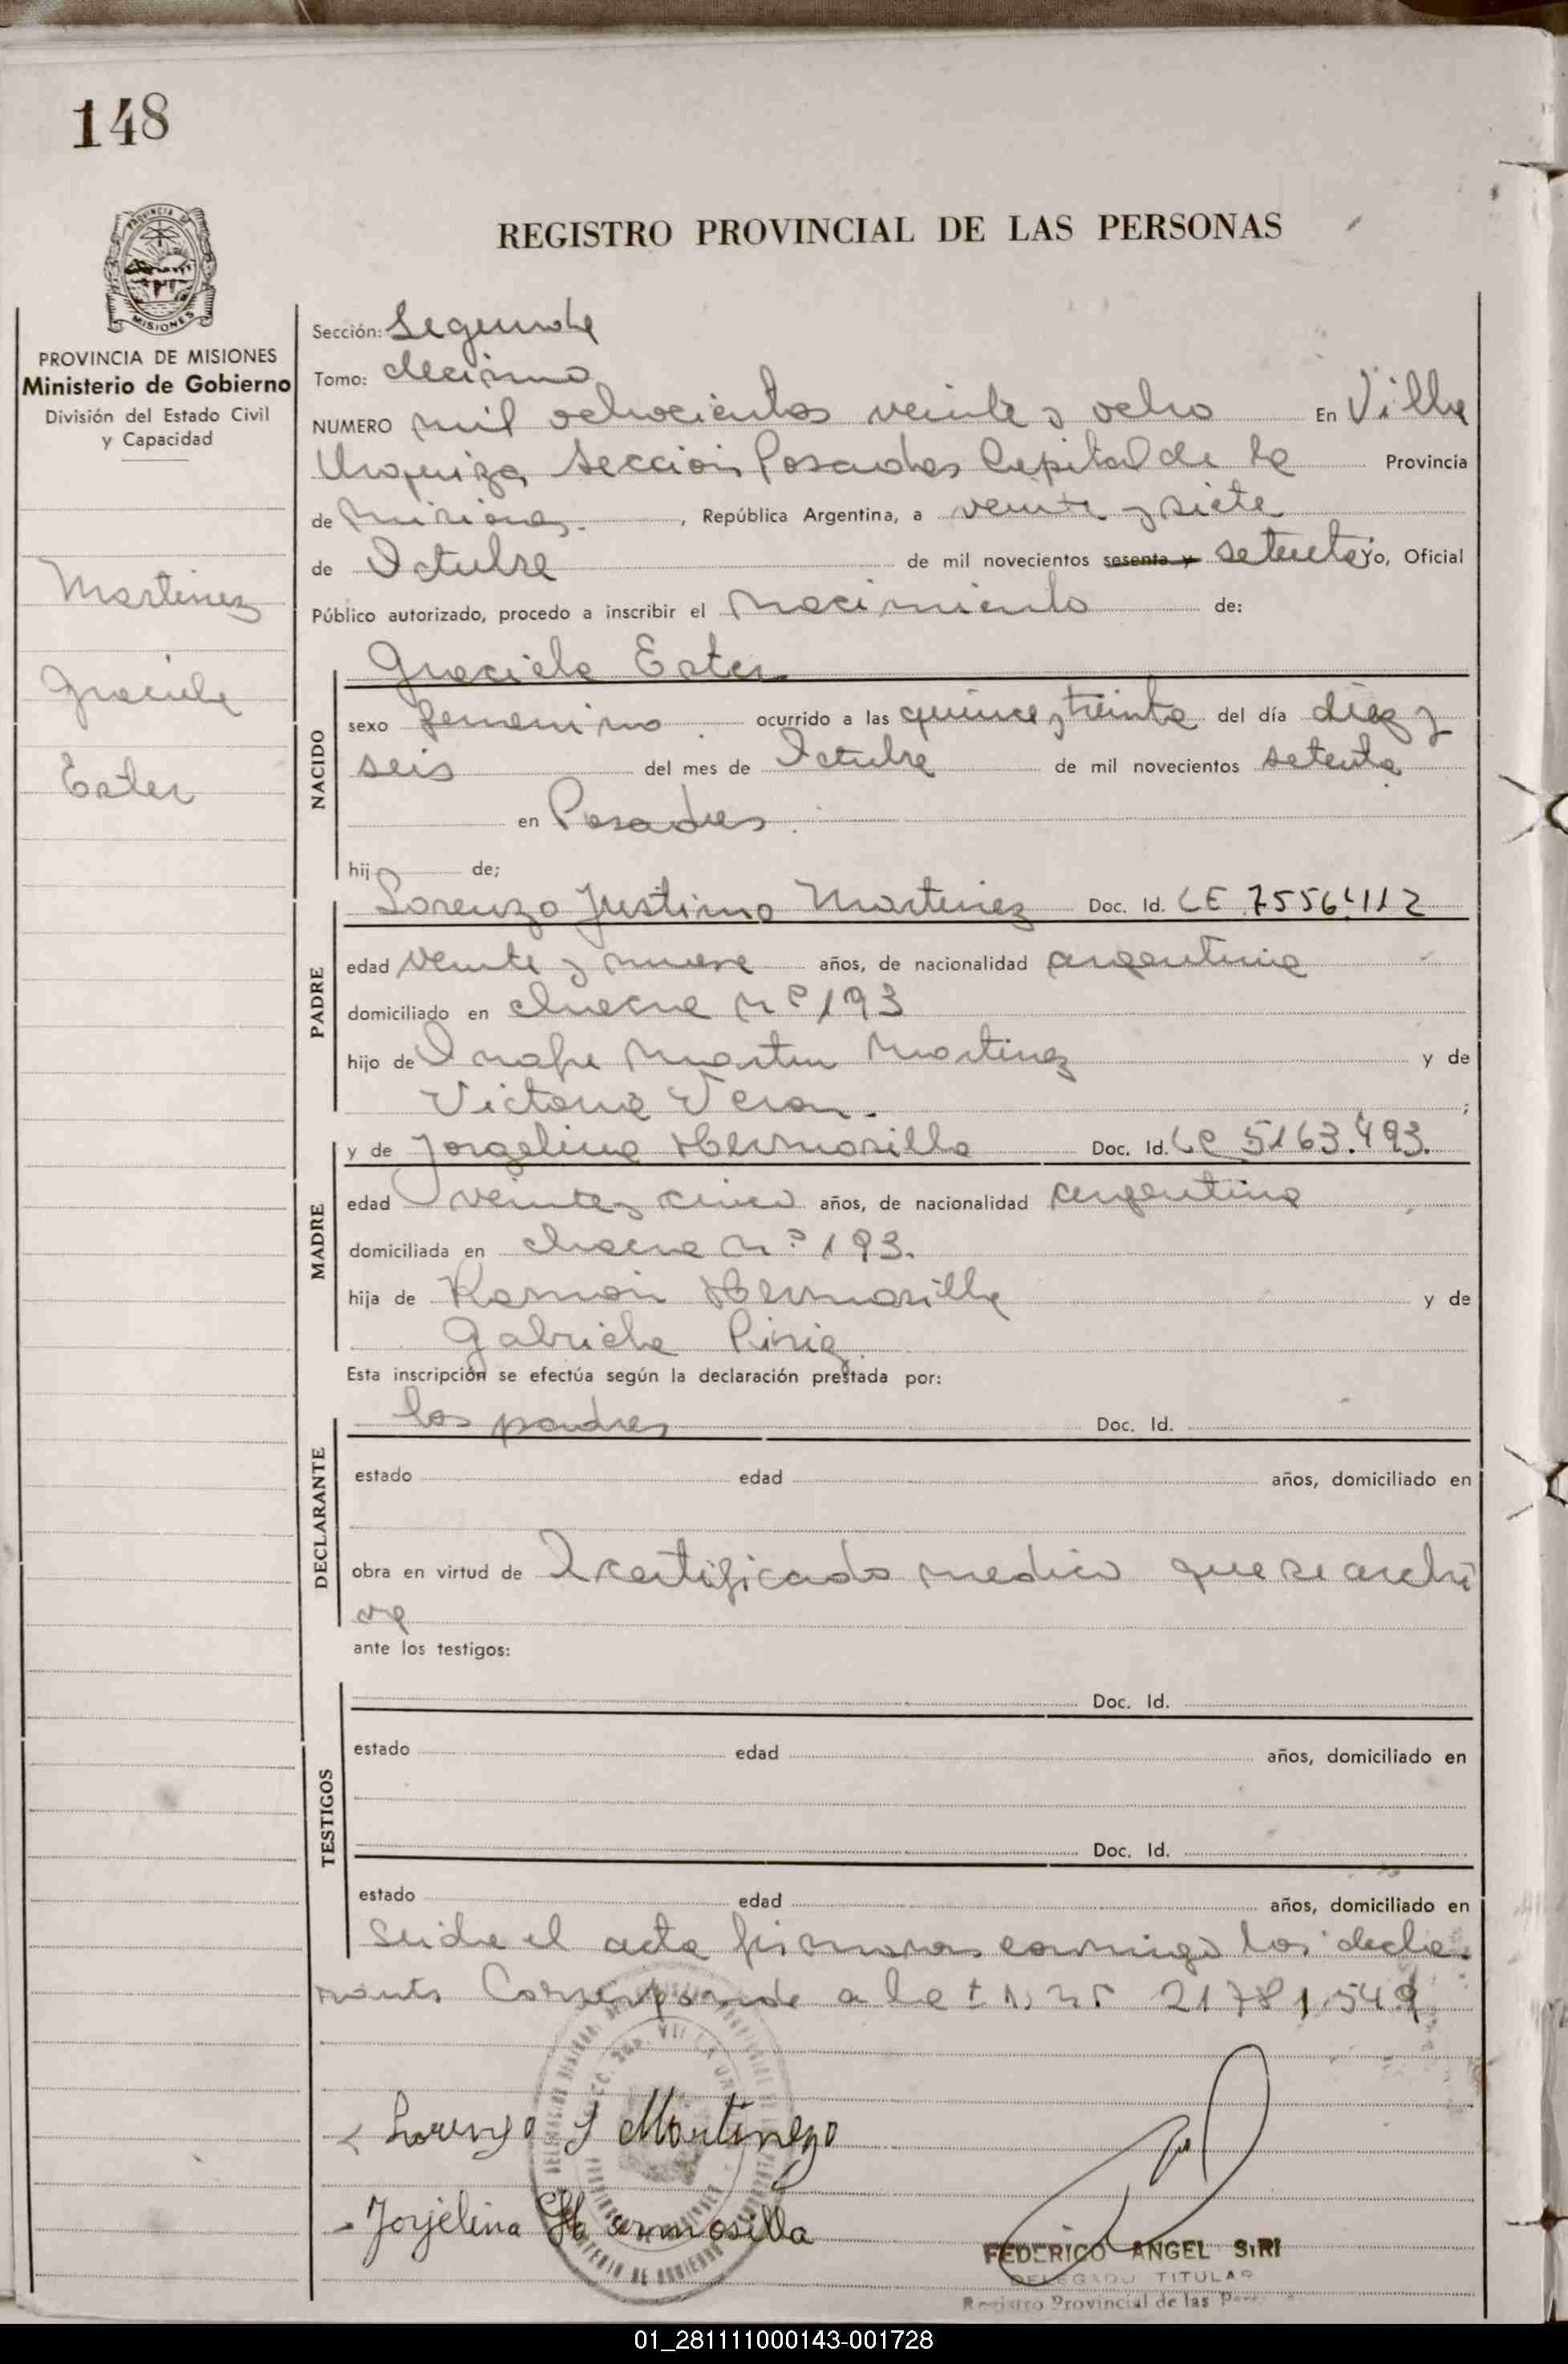 148
REGISTRO PROVINCIAL DE LAS PERSONAS
PROVINCIA DE MISIONES
Ministerio de Gobierno
División del Estado Civil
y Capacidad
Martinez
Graciela
Ester
Sección: Segunda
Tomo: decimo
NUMERO mil ochocientos veinte y ocho En Villa
Urquiza Seccion Posadas Capital de la Provincia
de Misiones. , República Argentina, a veinte y siete
de Octubre de mil novecientos sesenta y setenta yo, Oficial
Público autorizado, procedo a inscribir el nacimiento de:
Graciela Ester
NACIDO
sexo femenino. ocurrido a las quince y treinta del día diez y
seis del mes de Octubre de mil novecientos setenta
en Posadas.
hij de;
Lorenzo Justino Martinez Doc. Id. LE 7556.112
PADRE
edad veinte y nueve años, de nacionalidad argentina
domiciliado en chacra nº 193
hijo de Martin Martinez y de
Victoria Veron. ;
y de Jorgelina Hermosilla Doc. Id. LC 5163.493.
MADRE
edad veinte y cinco años, de nacionalidad argentina
domiciliada en chacra nº 193.
hija de Ramon Hermosilla y de
Gabriela Piriz.
Esta inscripción se efectúa según la declaración prestada por:
los padres Doc. Id.
DECLARANTE
estado edad años, domiciliado en
obra en virtud de certificado medico que se archi
va
ante los testigos:
Doc. Id.
TESTIGOS
estado edad años, domiciliado en
Doc. Id.
estado edad años, domiciliado en
el acta firmaron conmigo los decla
rants Corresponde a la 21781.549
Lorenzo J Martinez
Jorjelina Hermosilla
FEDERICO ANGEL SIRI
DELEGADO TITULAR
Registro Provincial de las
01_281111000143-001728